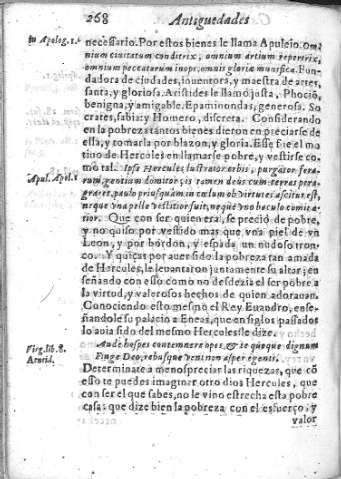 268 Antiguedades
in Apolog. 1. necessario. Por estos bienes le llama Apuleio. omnium
ciuitatum conditrix, omnium artium repertrix,
omnium peccatorum inops, omnis gloriæ munifica. Fundadora
de ciudades, inuentora, y maestra de artes,
santa, y gloriosa. Aristides le llamó justa, Phociō,
benigna, y amigable. Epaminondas, generosa. So
crates, sabia: y Homero, discreta. Considerando
en la pobreza tantos bienes dieron en preciarse de
ella, y tomarla por blazon, y gloria. Esse fue el mo
de Hercules en llamarse pobre, y vestirse co
Apul. Apol. 1 mo tal. Ipse Hercules lustrator orbis, purgator fera-
rum gentium domitor, is tamen deus cum terras pera
graret, paulo priusquàm in cœlum ob virtutes ascitus est,
neque vna pelle vestitior fuit, neque vno baculo comita-
tior. Que con ser quien era, se preció de pobre,
y no quiso por vestido mas que vna piel de vn
Leon, y por bordon, y espada vn nudoso tron-
co. Y quiças por auer sido la pobreza tan amada
de Hercules, le leuantaron juntamente su altar; en
señando con esso como no desdezia el ser pobre a
la virtud, y valerosos hechos de quien adorauan.
Conociendo esto mesmo el Rey Euandro, ense-
ñandole su palacio a Eneas, que en siglos passados
lo auia sido del mesmo Hercules le dize.
Virg. lib. 8. Aude hospes contemnere opes, & te quoque dignum
Æneid. Finge Deo, rebusque veni non asper egenis.
Determinate a menospreciar las riquezas, que cō
esso te puedes imaginar otro dios Hercules, que
con ser el que sabes, no le vino estrecha esta pobre
casa: que dize bien la pobreza con el esfuerço, y
valor